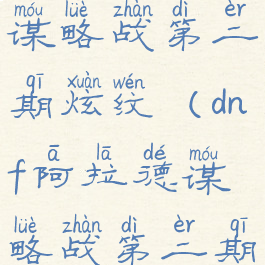 móu lüè zhàn dì èr
谋略战第二
qī xuàn wén
期炫纹（dn
ā lā dé móu
f阿拉德谋
lüè zhàn dì èr qī
略战第二期